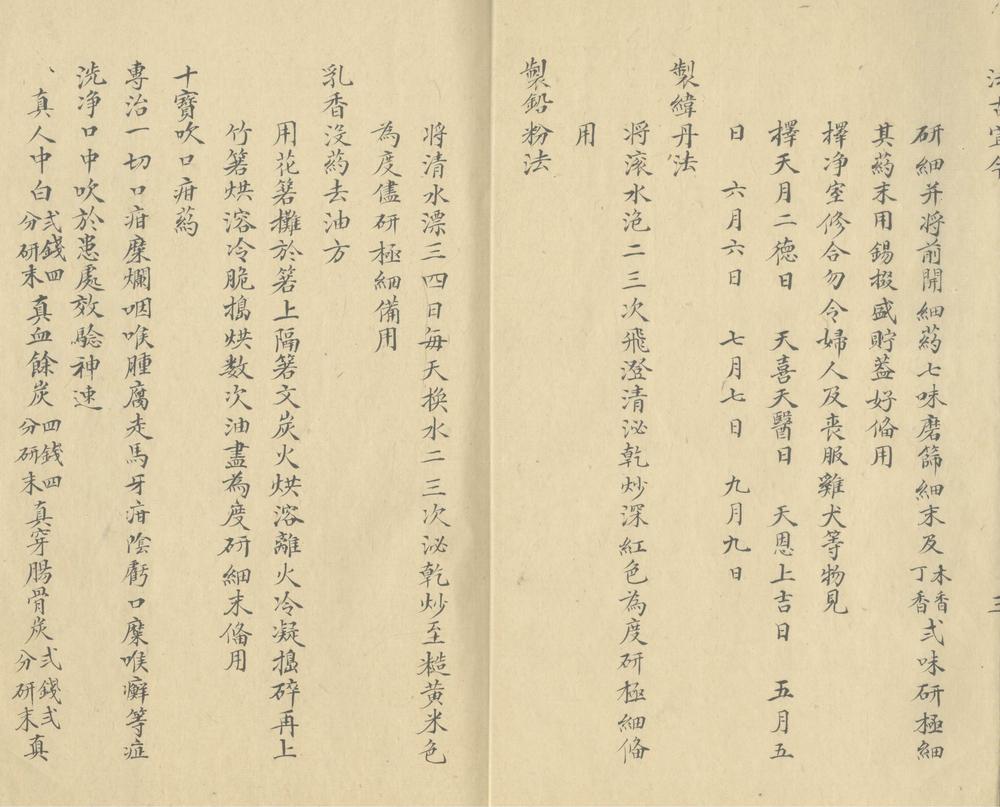 研細并將前開細葯七味磨篩細末及木香丁香弍味研極細
其葯末用錫掇盛貯葢好俻用
擇净室修合勿令婦人及喪服雞犬等物見
擇天月二德日 天喜天醫日 天恩上吉日 五月五
日 六月六日 七月七日 九月九日
製緯丹法
將滚水洮二三次飛澄清泌乾炒深紅色為度研極細俻
用
製鉛粉法
將清水漂三四日每天換水二三次泌乾炒至糙黃米色
為度儘研極細備用
乳香沒葯去油方
用花箬攤於箬上隔箬文炭火烘溶離火冷凝搗碎再上
竹箬烘溶冷脆搗烘数次油盡為度研細末俻用
十寶吹口疳葯
專治一切口疳糜爛咽喉腫腐走馬牙疳陰虧口糜喉癬等症
洗净口中吹於患處效驗神速
、真人中白弍錢四分研末真血餘炭四錢四分研末真穿腸骨炭弍錢弍分研末真